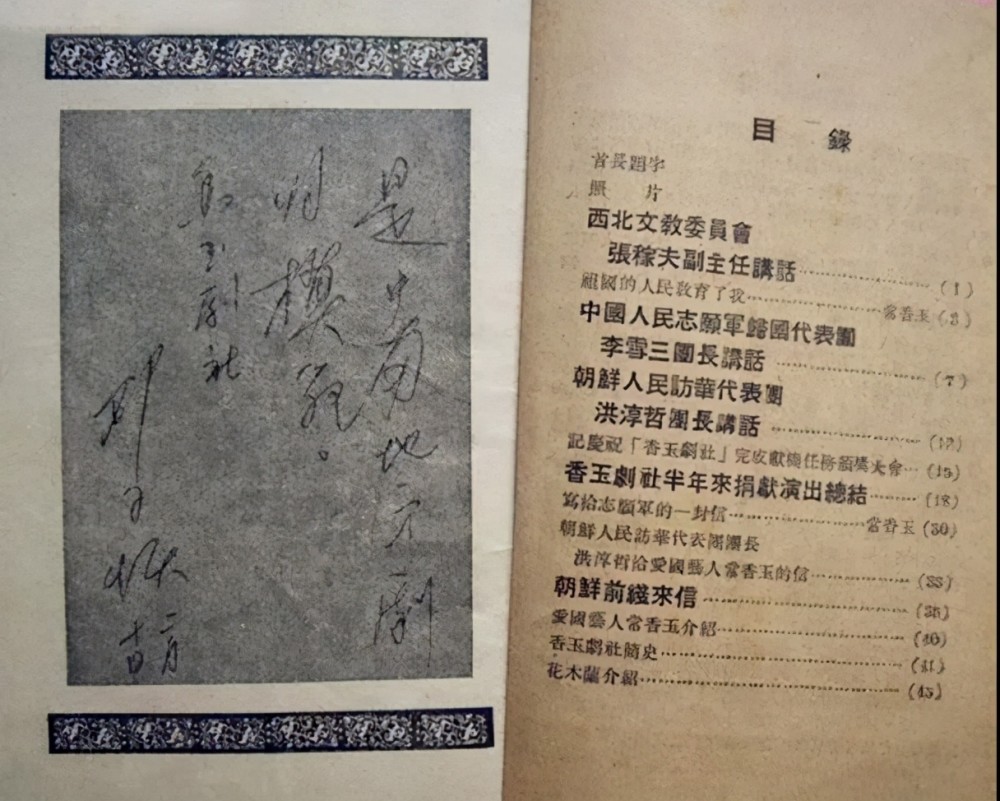 是中南地方劇
的模範。
香玉劇社
邓子恢
二月
目 錄
首長題字
照 片
西北文教委員會
張稼夫副主任講話……………(1)
祖國的人民敎育了我……………常香玉(3)
中國人民志願軍歸國代表團
李雪三團長講話……………(7)
朝鮮人民訪華代表團
洪淳哲團長講話……………(12)
記慶祝「香玉劇社」完成獻機任務頒獎大會…(15)
香玉劇社半年來捐獻演出總結……(18)
寫給志願軍的一封信……………常香玉(30)
朝鮮人民訪華代表團團長
洪淳哲給愛國藝人常香玉的信……………(33)
朝鮮前綫來信……………(35)
愛國藝人常香玉介紹……………(40)
香玉劇社簡史……………(41)
花木蘭介紹……………(45)